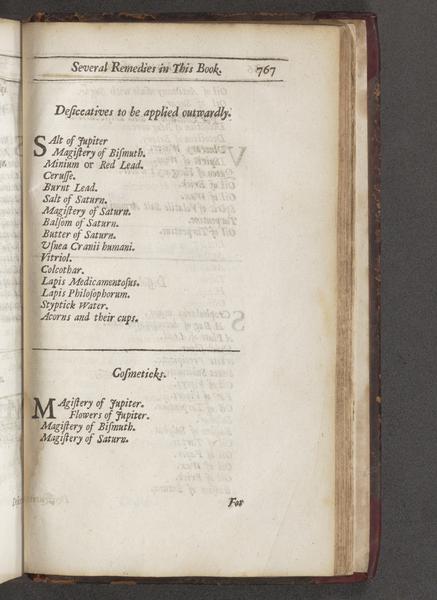 Several Remedies in This Book. 767
Desiccatives to be applied outwardly.
SAlt of Jupiter
Magistery of Bismuth.
Minium or Red Lead.
Cerusse.
Burnt Lead.
Salt of Saturn.
Magistery of Saturn.
Balsom of Saturn.
Butter of Saturn.
Usnea Cranii humani.
Vitriol.
Colcothar.
Lapis Medicamentosus.
Lapis Philosophorum.
Styptick Water.
Acorns and their cups.
Cosmeticks.
MAgistery of Jupiter.
Flowers of Jupiter.
Magistery of Bismuth.
Magistery of Saturn.
For